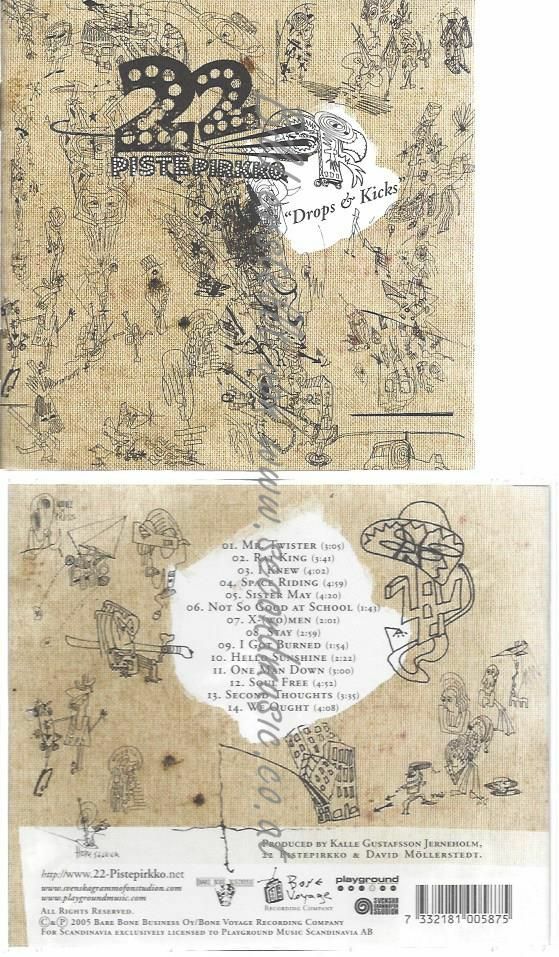 22
PISTEPIRKKO
"Drops & Kicks"
01. Mr. Twister (3:05)
02. Rat King (3:41)
03. I Knew (4:02)
04. Space Riding (4:59)
05. Sister May (4:20)
06. Not So Good at School (1:43)
07. X-(wo)men (2:01)
08. Stay (2:59)
09. I Got Burned (1:54)
10. Hello Sunshine (2:22)
11. One Man Down (3:00)
12. Soul Free (4:52)
13. Second Thoughts (3:35)
14. We Ought (4:08)
Produced by Kalle Gustafsson Jerneholm,
22 Pistepirkko & David Möllerstedt.
http://www.22-Pistepirkko.net
www.svenskagrammofonstudion.com
www.playgroundmusic.com
BARE BONE BUSINESS
Bone Voyage
Recording Company
playground
SVENSKA GRAMMOFON STUDION
7 332181 005875
All Rights Reserved.
© ℗ 2005 Bare Bone Business Oy/Bone Voyage Recording Company
For Scandinavia exclusively licensed to Playground Music Scandinavia AB